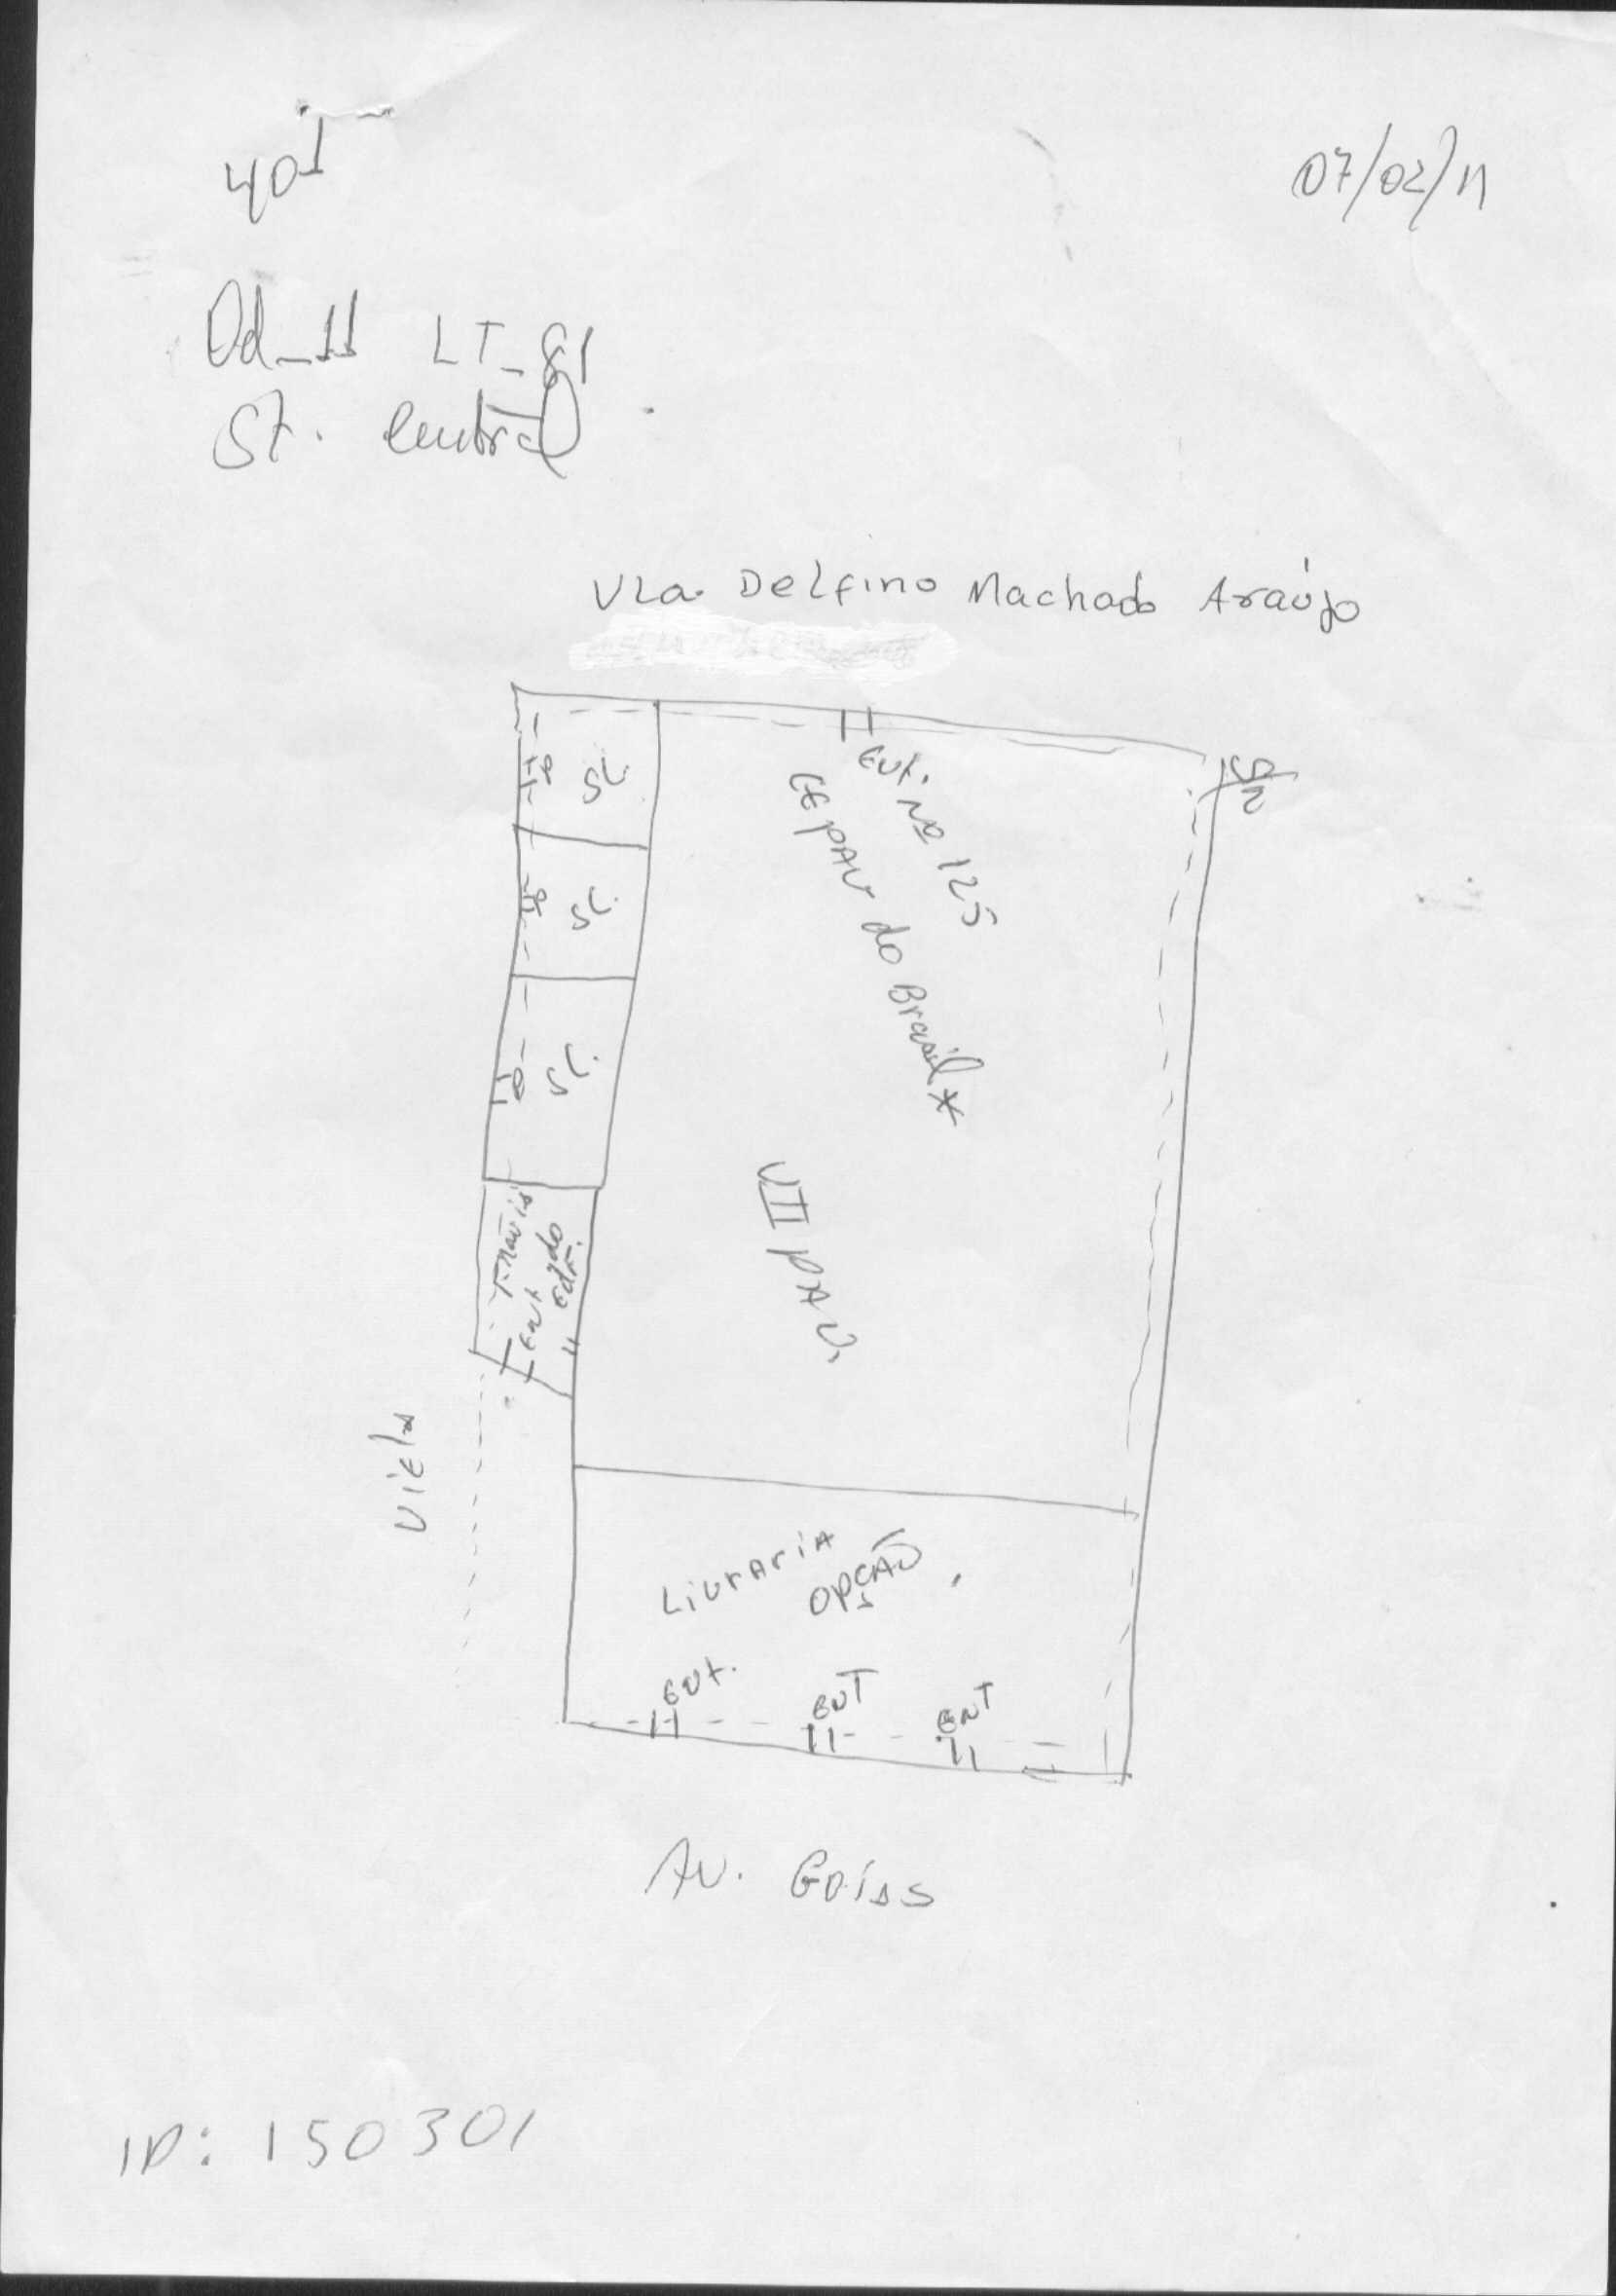 401
07/02/11
Qd_11 LT_81
St. Central
Vla. Delfino Machado Araújo
Ent. Nº 125
CEPAU do Brasil *
S/N
SL.
SL.
SL.
VII PAV.
Ent do
Edf.
Viela
LivrAriA
OPÇÃO
Ent.
ENT
ENT
AV. Goiás
ID: 150301